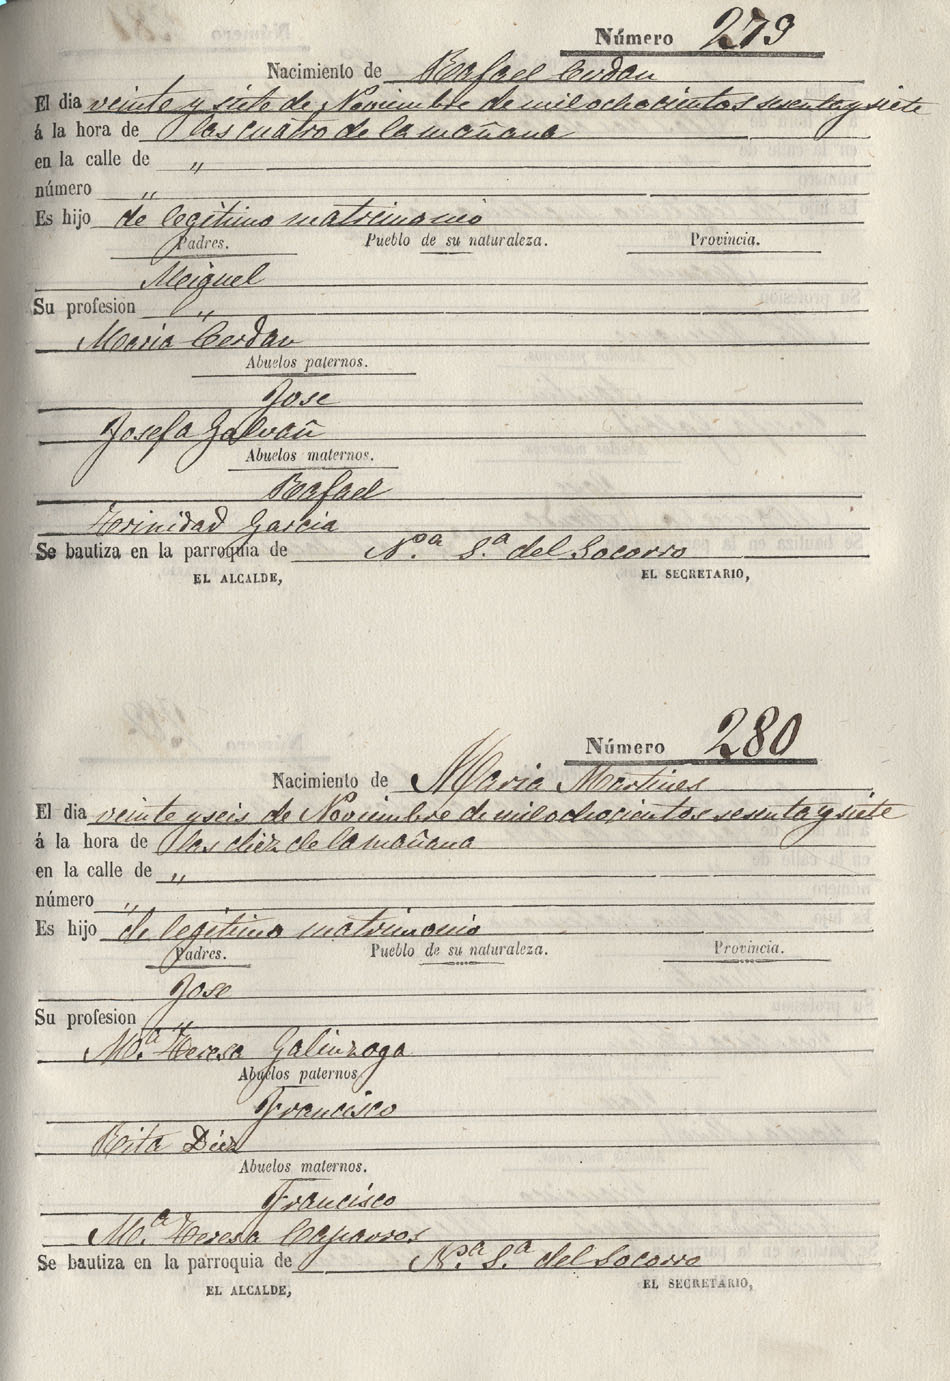 Número 279
Nacimiento de Rafael Cerdan
El dia veinte y siete de Noviembre de mil ochocientos sesenta y siete
á la hora de las cuatro de la mañana
en la calle de „
número „
Es hijo de legitimo matrimonio
Padres. Pueblo de su naturaleza. Provincia.
Miguel
Su profesion „
Maria Cerdan
Abuelos paternos.
Jose
Josefa Galvañ
Abuelos maternos.
Rafael
Trinidad Garcia
Se bautiza en la parroquia de N.ª S.ª del Socorro
EL ALCALDE, EL SECRETARIO,
Número 280
Nacimiento de Maria Martines
El dia veinte y seis de Noviembre de mil ochocientos sesenta y siete
á la hora de las diez de la mañana
en la calle de „
número „
Es hijo de legitimo matrimonio
Padres. Pueblo de su naturaleza. Provincia.
Jose
Su profesion „
M.ª Teresa Galinzoga
Abuelos paternos.
Francisco
Rita Diez
Abuelos maternos.
Francisco
M.ª Teresa Caparros
Se bautiza en la parroquia de N.ª S.ª del Socorro
EL ALCALDE, EL SECRETARIO,